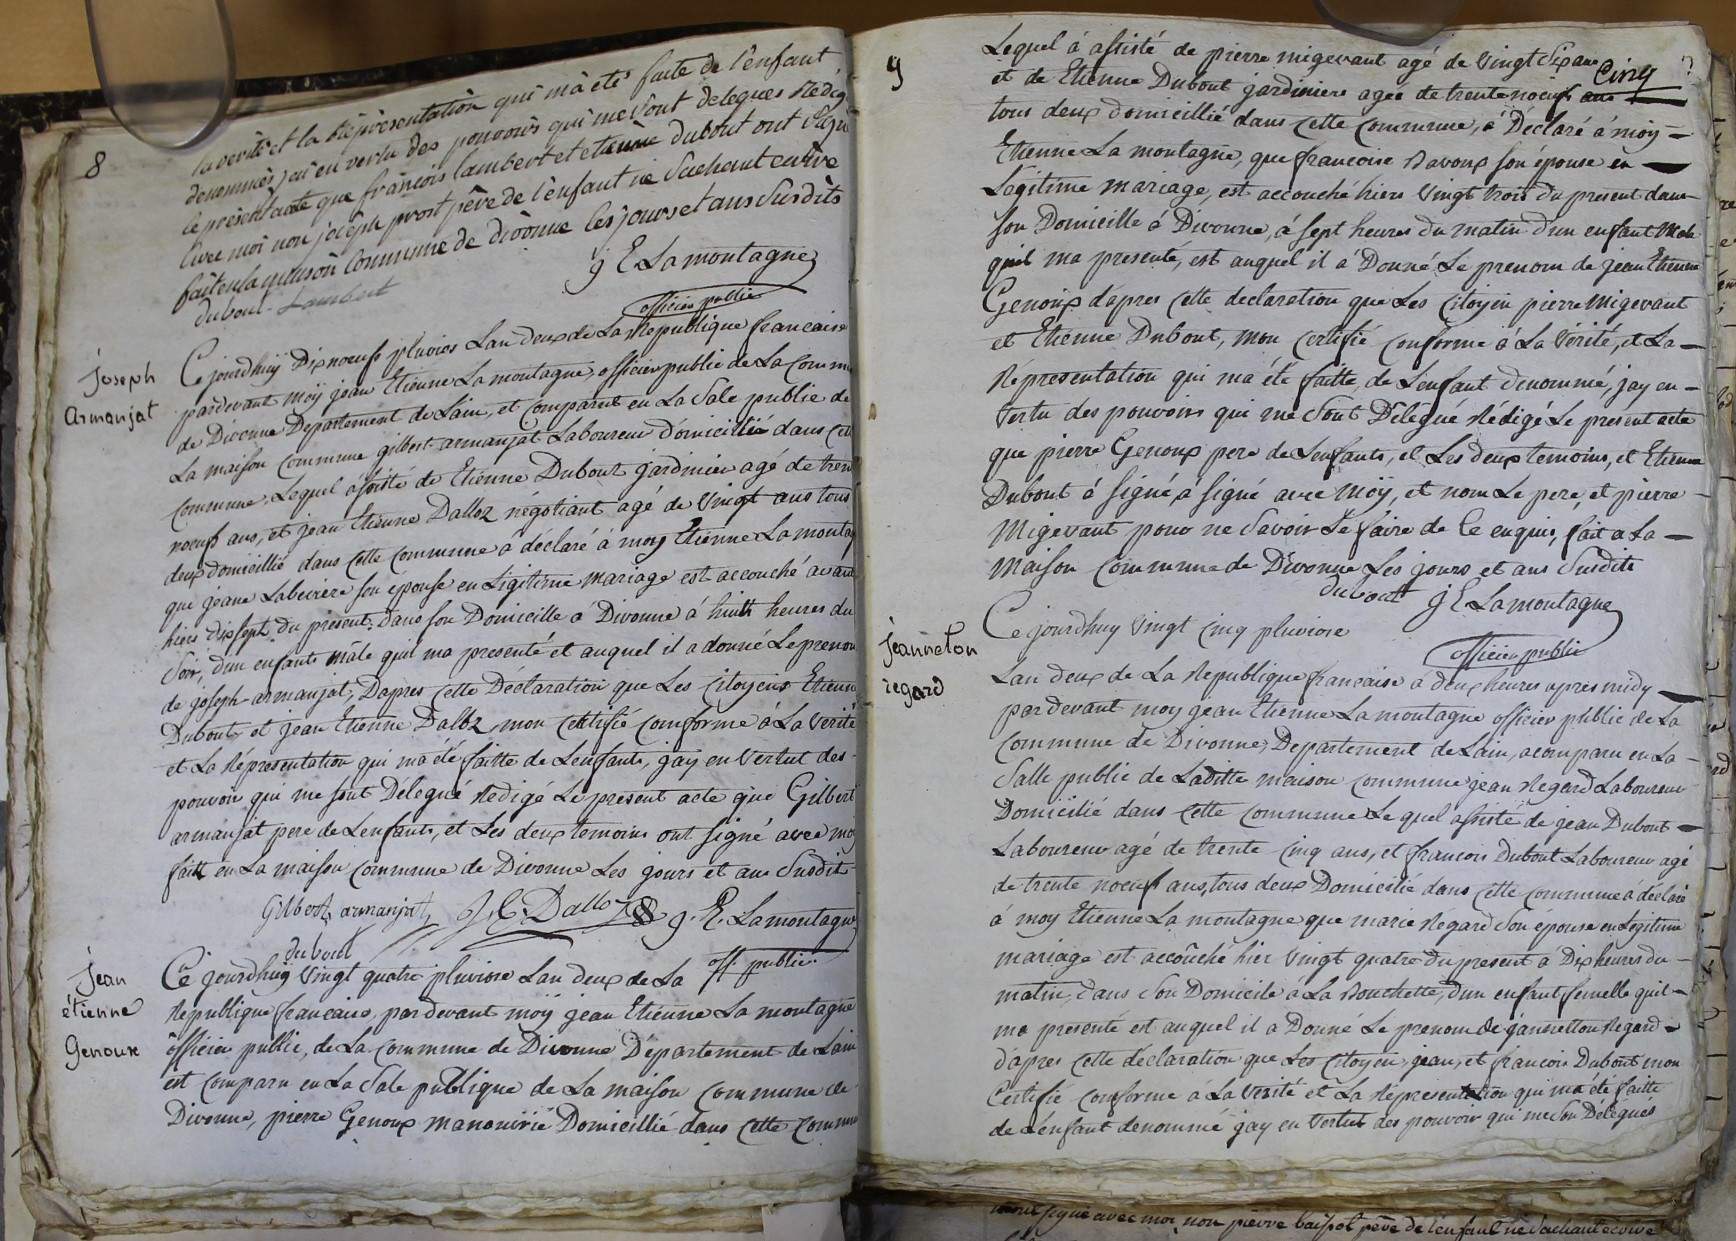 8
la verité et la Représentation qui m'a été faite de l'enfant
denommés, j'ai en vertu des pouvoirs qui me sont delegués Rédigé
le présent acte que françois lambert et etiènne dubout ont signé
avec moi non joseph prost père de l'enfant ne sachant ecrire
fait en la maison commune de divonne les jours et ans susdits
dubout Lambert
j E Lamontagne
officier public
Joseph
armanjat
Ce jourdhuÿ Dix noeufs pluvios Lan deux de La Republique francaise
pardevant moÿ jean Etienne Lamontagne, officier public de La Commu
de Divonne Departement de Lain, et Comparut en La Sale public de
La maison Commune gilbert armanjat Laboureur domicillié dans cett
Commune, Lequel assisté de Etienne Dubout jardinier agé de tren
noeufs ans, et jean Etienne Dalloz négotiant agé de Vingt ans tous
deux domicillié dans cette commune à déclaré à moy Etienne Lamontag
que jeane Labeviere son epouse en Ligitime mariage est accouché avant
hiers dixsept du présent, dans son Domicille à Divonne à huitt heures du
Soir, d'un enfants mâle quil ma presenté et auquel il a donné Le prenom
de joseph armanjat, Dapres cette Déclaration que Les Citoyens Etienn
Dubout, et jean Etienne Dalloz, mon Certifié Comforme à La Verité
et La Répresentation qui ma été faitte de Lenfants, jay en Vertut des
pouvoir qui me sont Délegué Redigé Le present acte que Gilbert
armanjat pere de Lenfants, et Les deux temoins ont signé avec moy
faitt en La maison Commune de Divonne Les jours et ans Susdit
Gilbert armanjat J. E. Dalloz j. E. Lamontagne
dubout
off public
Jean
étienne
Genoux
Ce jourdhuy Vingt quatre pluviose Lan deux de La
Republique francaise, pardevant moÿ jean Etienne La montagne
officier public, de La Commune de Divonne Département de Lain
est Comparu en La Sale publique de La maison Commune de
Divonne, pierre Genoux manouivrié Domicillié dans cette Commun
9
Cinq
Lequel à assisté de pierre migevant agé de Vingt Six ans
et de Etienne Dubout jardiniere agée de trente noeufs ans
tous deux domicillié dans cette Commune, à Declaré à moy
Etienne La montagne, que francoise Ravoux son épouse en
Légitime mariage, est accouché hiers Vingt trois du present dans
son Domicille à Divonne, à sept heures du matin d'un enfant Male
quil ma presenté, est auquel il a Donné Le prenom de jean Etienne
Genoux d'apres cette declaration que Les Citoyen pierre Migevant
et Etienne Dubout, mon Certifié Conforme à La Vérité, et La
Répresentation qui ma été faitte, de Lenfant denommé, jay en
Vertu des pouvoirs qui me sont Délegué Rédigé Le present acte
que pierre Genoux pere de Lenfants, et Les deux temoins, et Etienne
Dubout à signé, à signé avec Moÿ, et nom Le pere, et pierre
Migevant pour ne Savoir Le faire de Ce enquis, fait a La
Maison Commune de Divonne Les jours et ans Susdits
dubout j E Lamontagne
officier public
jeanneton
regard
Ce jourdhuy Vingt Cinq pluviose
Lan deux de La Republique francaise à deux heures apres midy
pardevant moy jean Etienne La montagne officier public de La
Commune de Divonne, Departement de Lain, acomparu en La
Salle public de Laditte maison Commune jean Regard Laboureur
Domicilié dans cette Commune Le quel assisté de jean Dubout
Laboureur agé de trente Cinq ans, et francois Dubout Laboureur agé
de trente noeuf ans, tous deux Domicilié dans cette Commune à déclaré
à moy Etienne La montagne que marie Régard Son épouse en Légitime
mariage est accouché hier Vingt quatre du present a Dix heures du
matin, dans Son Domicile a La Rouchette, d'un enfant femelle quil
ma presenté est auquel il a Donné Le prenom de jannetton Regard
d'apres cette déclaration que Les Citoyen jean, et francois Dubout mon
Certifié Conforme à La Verité et La Répresentation qui ma été faitte
de Lenfant denommé jay en Vertut des pouvoir qui me son Délegués
avec moi, non pierre père de l'enfant ne sachant ecrire